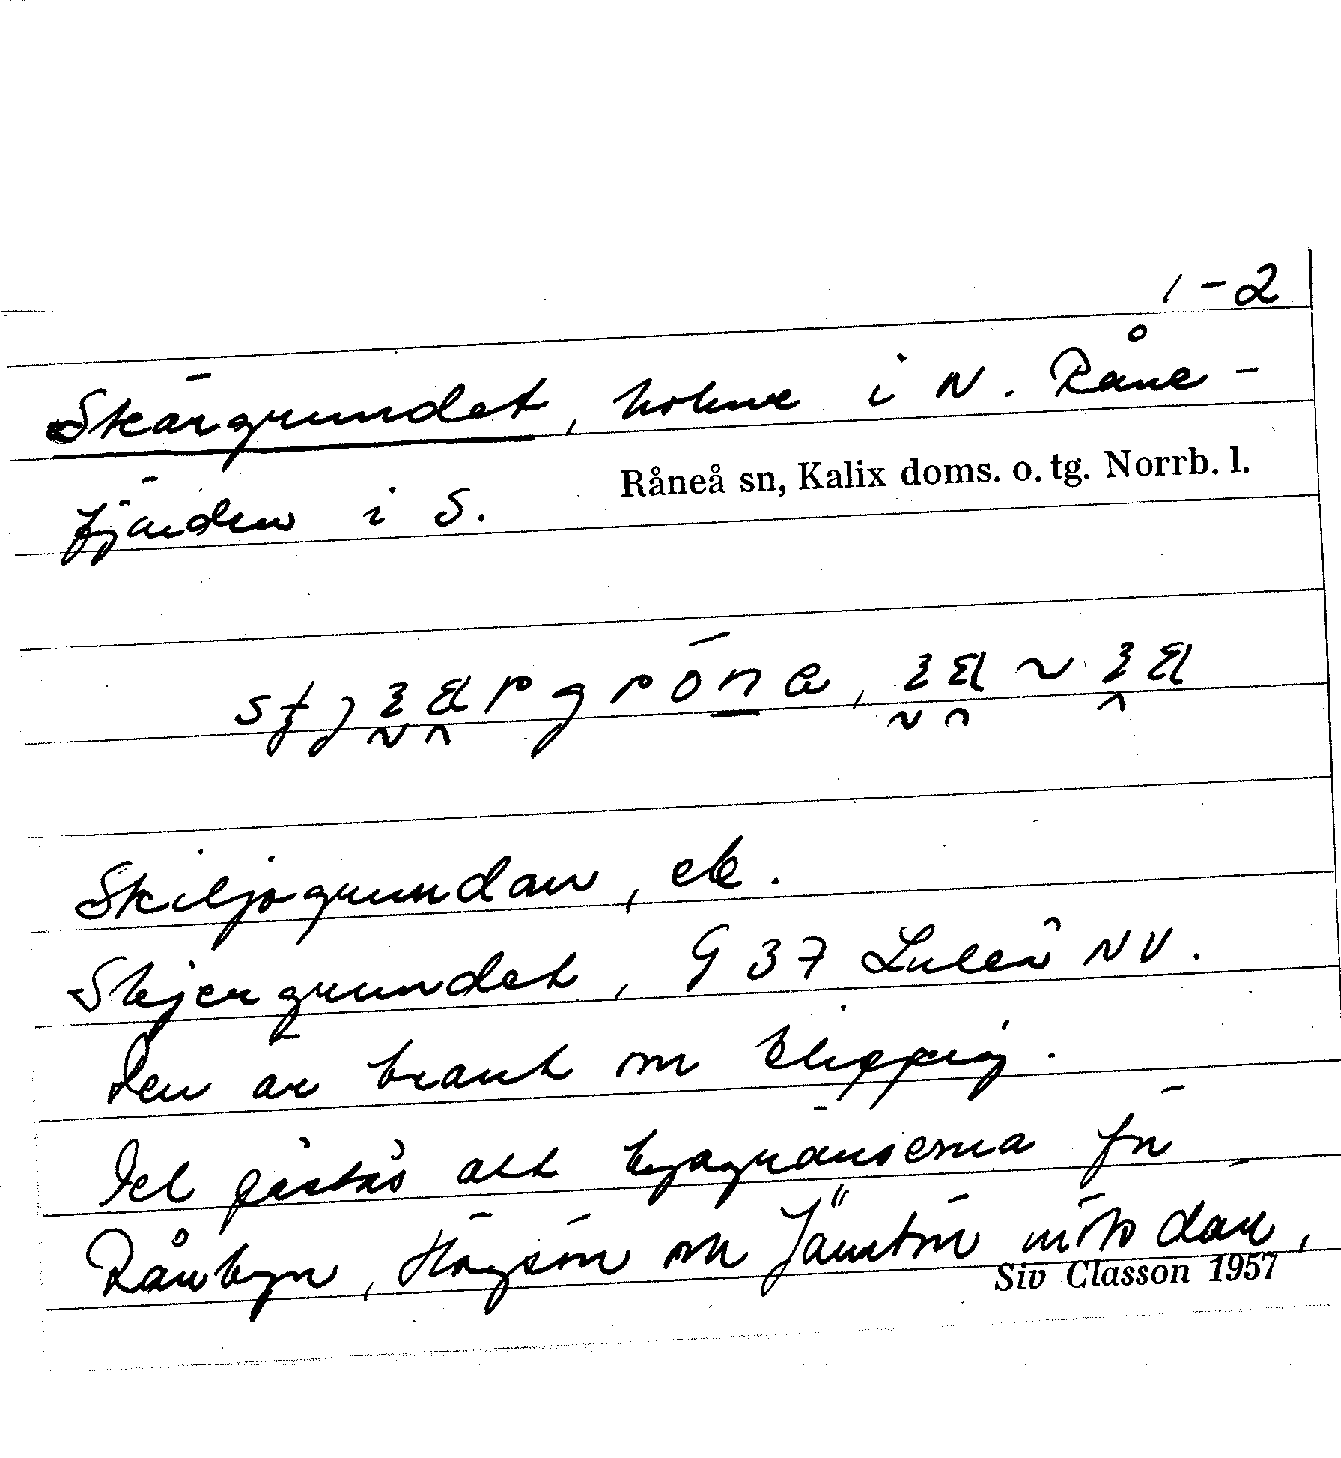 1-2
Skärgrundet, holme i N. Råne-
fjärden i S.
Råneå sn, Kalix doms. o. tg. Norrb. l.
Skiljogrundan, ek.
Skjergrundet, 9 37 Luleå NV.
Den är brant och klippig.
Det påstås att byagränserna för
Rånbyn, Högsön och Jämtön möts där,
Siv Classon 1957